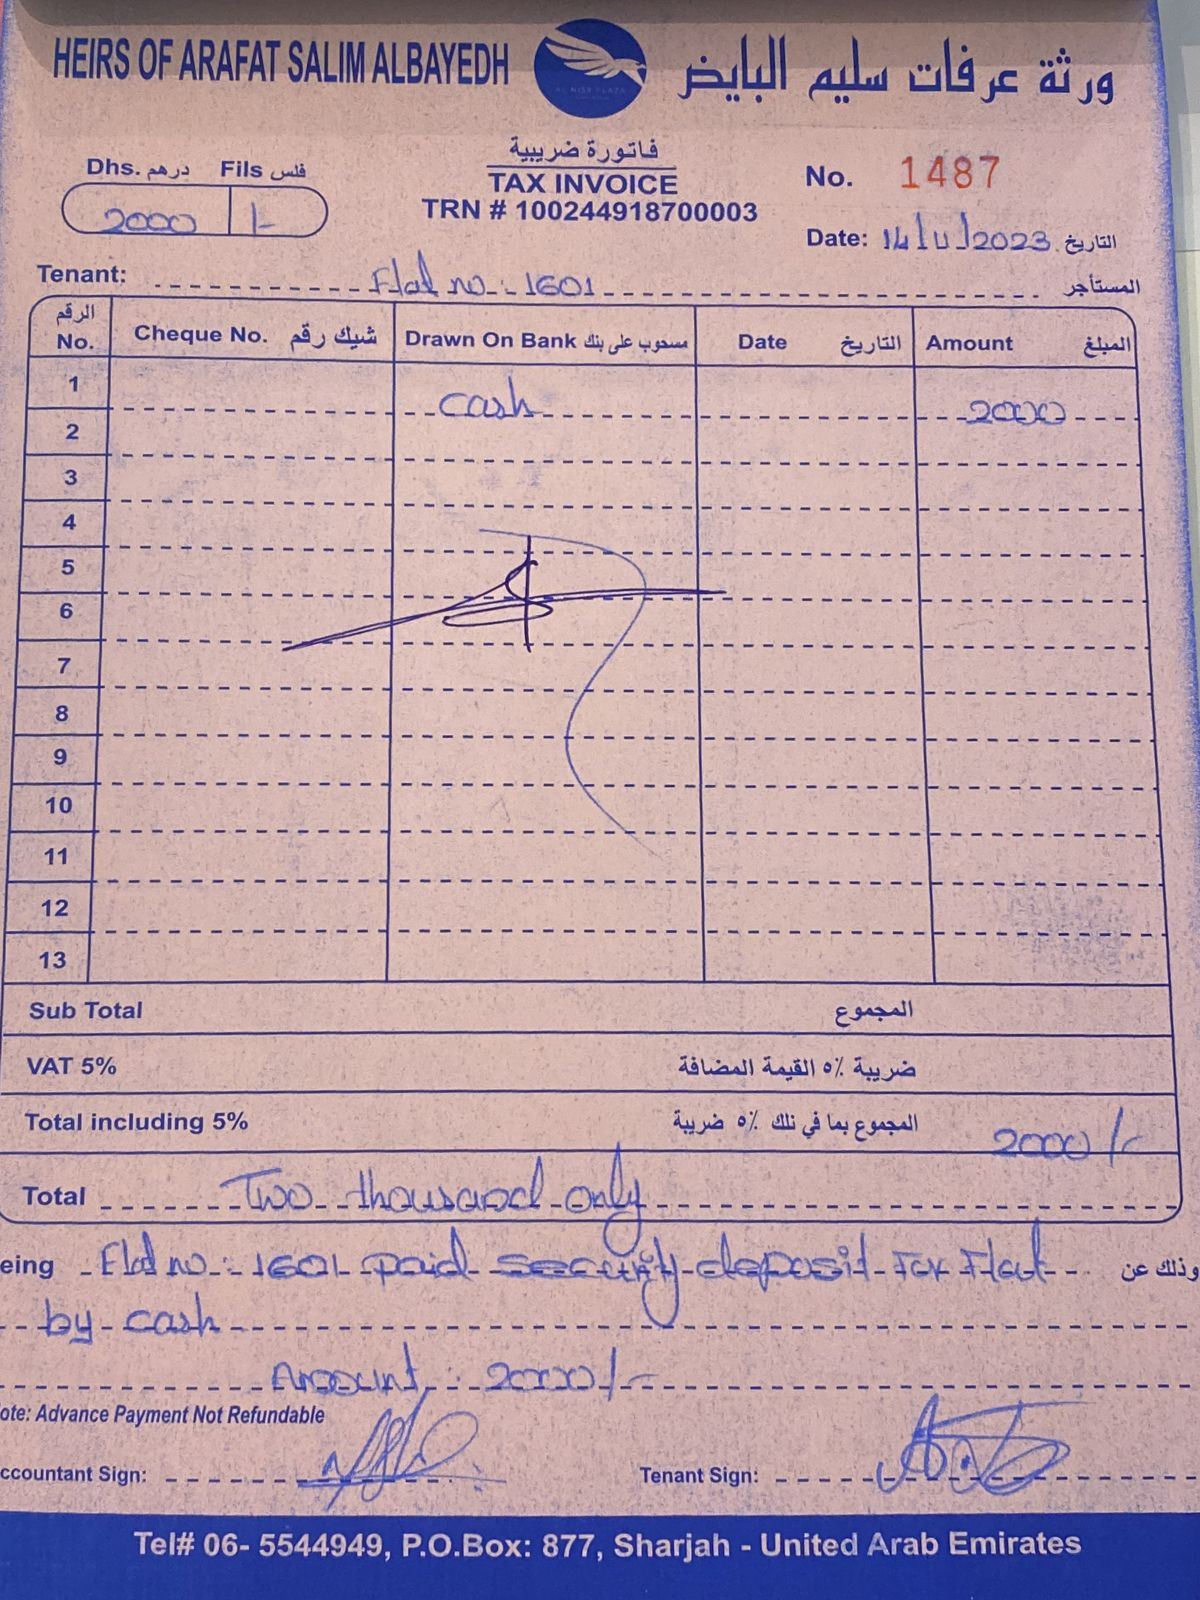 HEIRS OF ARAFAT SALIM ALBAYEDH
ورثة عرفات سليم البايض
AL NISR PLAZA
فاتورة ضريبية
TAX INVOICE
TRN # 100244918700003
Dhs. درهم Fils فلس
2000 /-
No. 1487
Date: 14/11/2023 التاريخ
Tenant: Flat no: 1601 المستأجر
الرقم No. Cheque No. شيك رقم Drawn On Bank مسحوب على بنك Date التاريخ Amount المبلغ
1
cash 2000
2
3
4
5
6
7
8
9
10
11
12
13
Sub Total المجموع
VAT 5% ضريبة ٥٪ القيمة المضافة
Total including 5% المجموع بما في تلك ٥٪ ضريبة 2000/-
Total Two thousand only
eing Flat no: 1601 paid security deposit For Flat وذلك عن
by cash
Amount : 2000/-
ote: Advance Payment Not Refundable
ccountant Sign: Tenant Sign:
Tel# 06- 5544949, P.O.Box: 877, Sharjah - United Arab Emirates